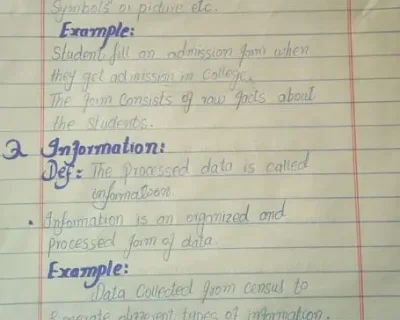 Symbols or picture etc.
Example:
Student fill an admission form when
they get admission in college.
The form consists of raw facts about
the students.
2 Information:
Def: The processed data is called
information.
• Information is an organized and
processed form of data.
Example:
Data Collected from census to
generate different types of information.